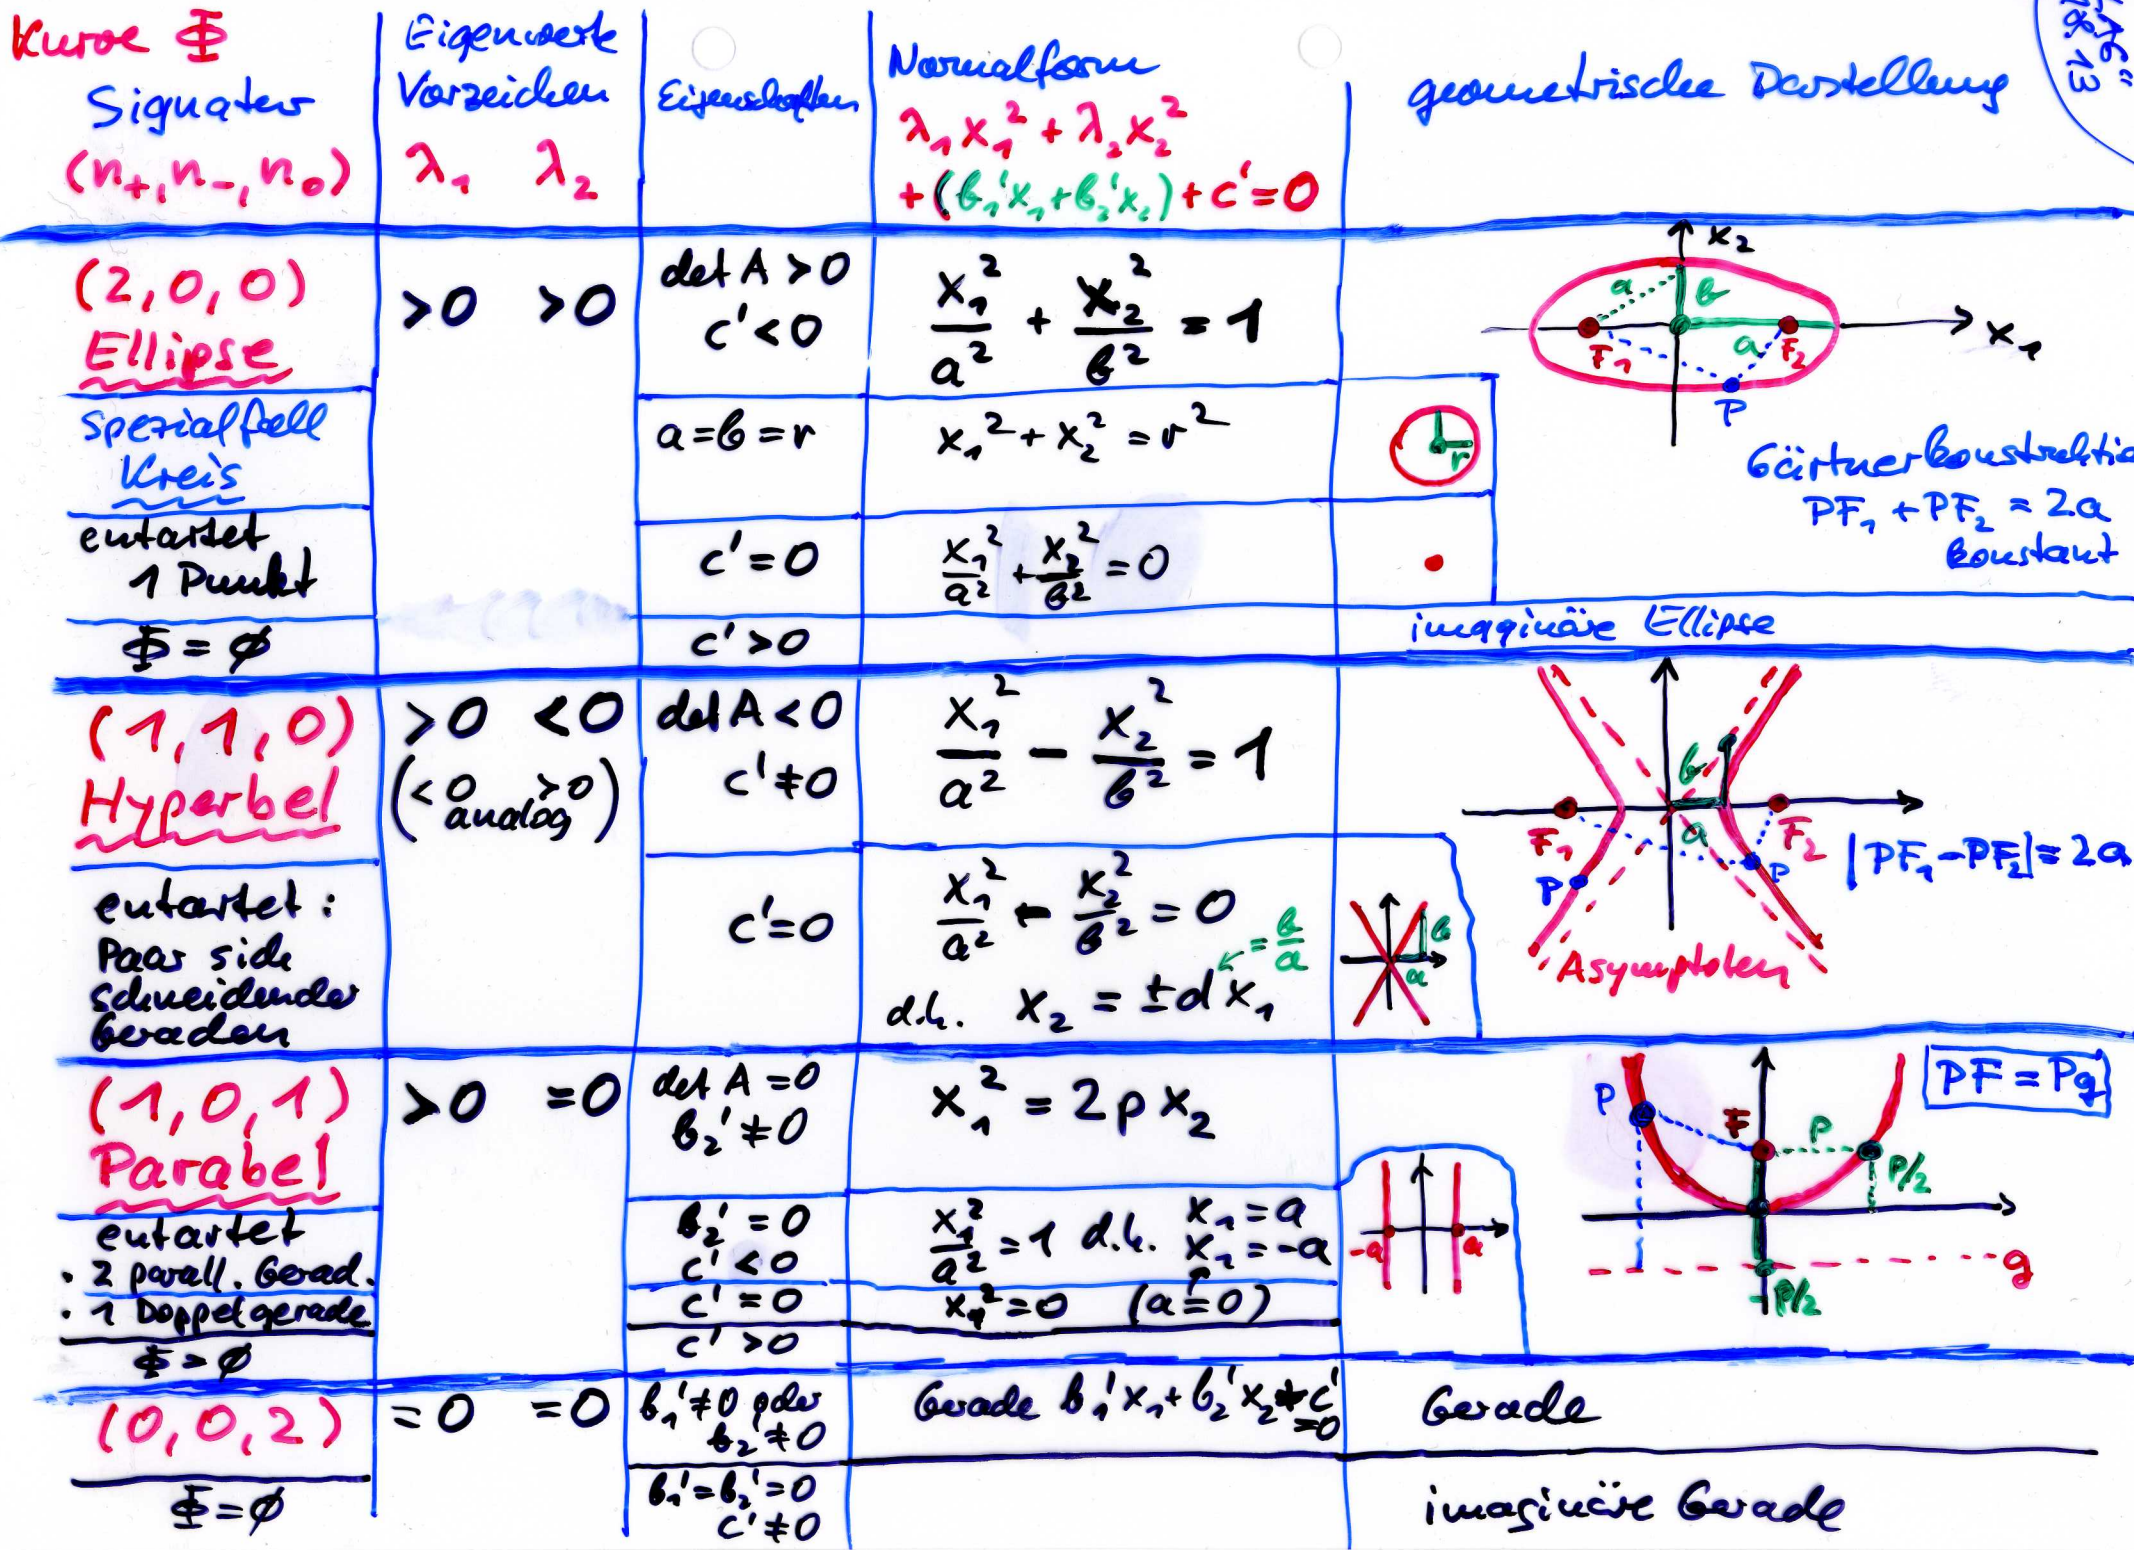 Kurve Φ
Signatur
(n₊, n₋, n₀)
Eigenwerte
Vorzeichen
λ₁ λ₂
Eigenschaften
Normalform
λ₁x₁² + λ₂x₂²
+ (b₁'x₁ + b₂'x₂) + c' = 0
geometrische Darstellung
18.13
(2,0,0)
Ellipse
>0 >0
det A > 0
c' < 0
x₁²/a² + x₂²/b² = 1
x₂
a
b
x₁
F₁
a
F₂
P
Spezialfall
Kreis
a = b = r
x₁² + x₂² = r²
r
Gärtnerkonstruktio
PF₁ + PF₂ = 2a
konstant
entartet
1 Punkt
c' = 0
x₁²/a² + x₂²/b² = 0
Φ = ∅
c' > 0
imaginäre Ellipse
(1,1,0)
Hyperbel
>0 <0
(<0 >0
analog)
det A < 0
c' ≠ 0
x₁²/a² − x₂²/b² = 1
b
a
F₁
F₂
P
P
|PF₁ − PF₂| = 2a
Asymptoten
entartet:
Paar sich
schneidender
Geraden
c' = 0
x₁²/a² − x₂²/b² = 0
= b/a
d.h. x₂ = ±d x₁
b
a
(1,0,1)
Parabel
>0 =0
det A = 0
b₂' ≠ 0
x₁² = 2p x₂
PF = Pg
P
F
p
P/2
g
-P/2
entartet
• 2 parall. Gerad.
b₂' = 0
c' < 0
x₁²/a² = 1 d.h. x₁ = a
x₁ = -a
-a
a
• 1 Doppelgerade
c' = 0
x₁² = 0 (a = 0)
Φ = ∅
c' > 0
(0,0,2)
=0 =0
b₁' ≠ 0 oder
b₂' ≠ 0
Gerade b₁'x₁ + b₂'x₂ + c'
= 0
Gerade
Φ = ∅
b₁' = b₂' = 0
c' ≠ 0
imaginäre Gerade